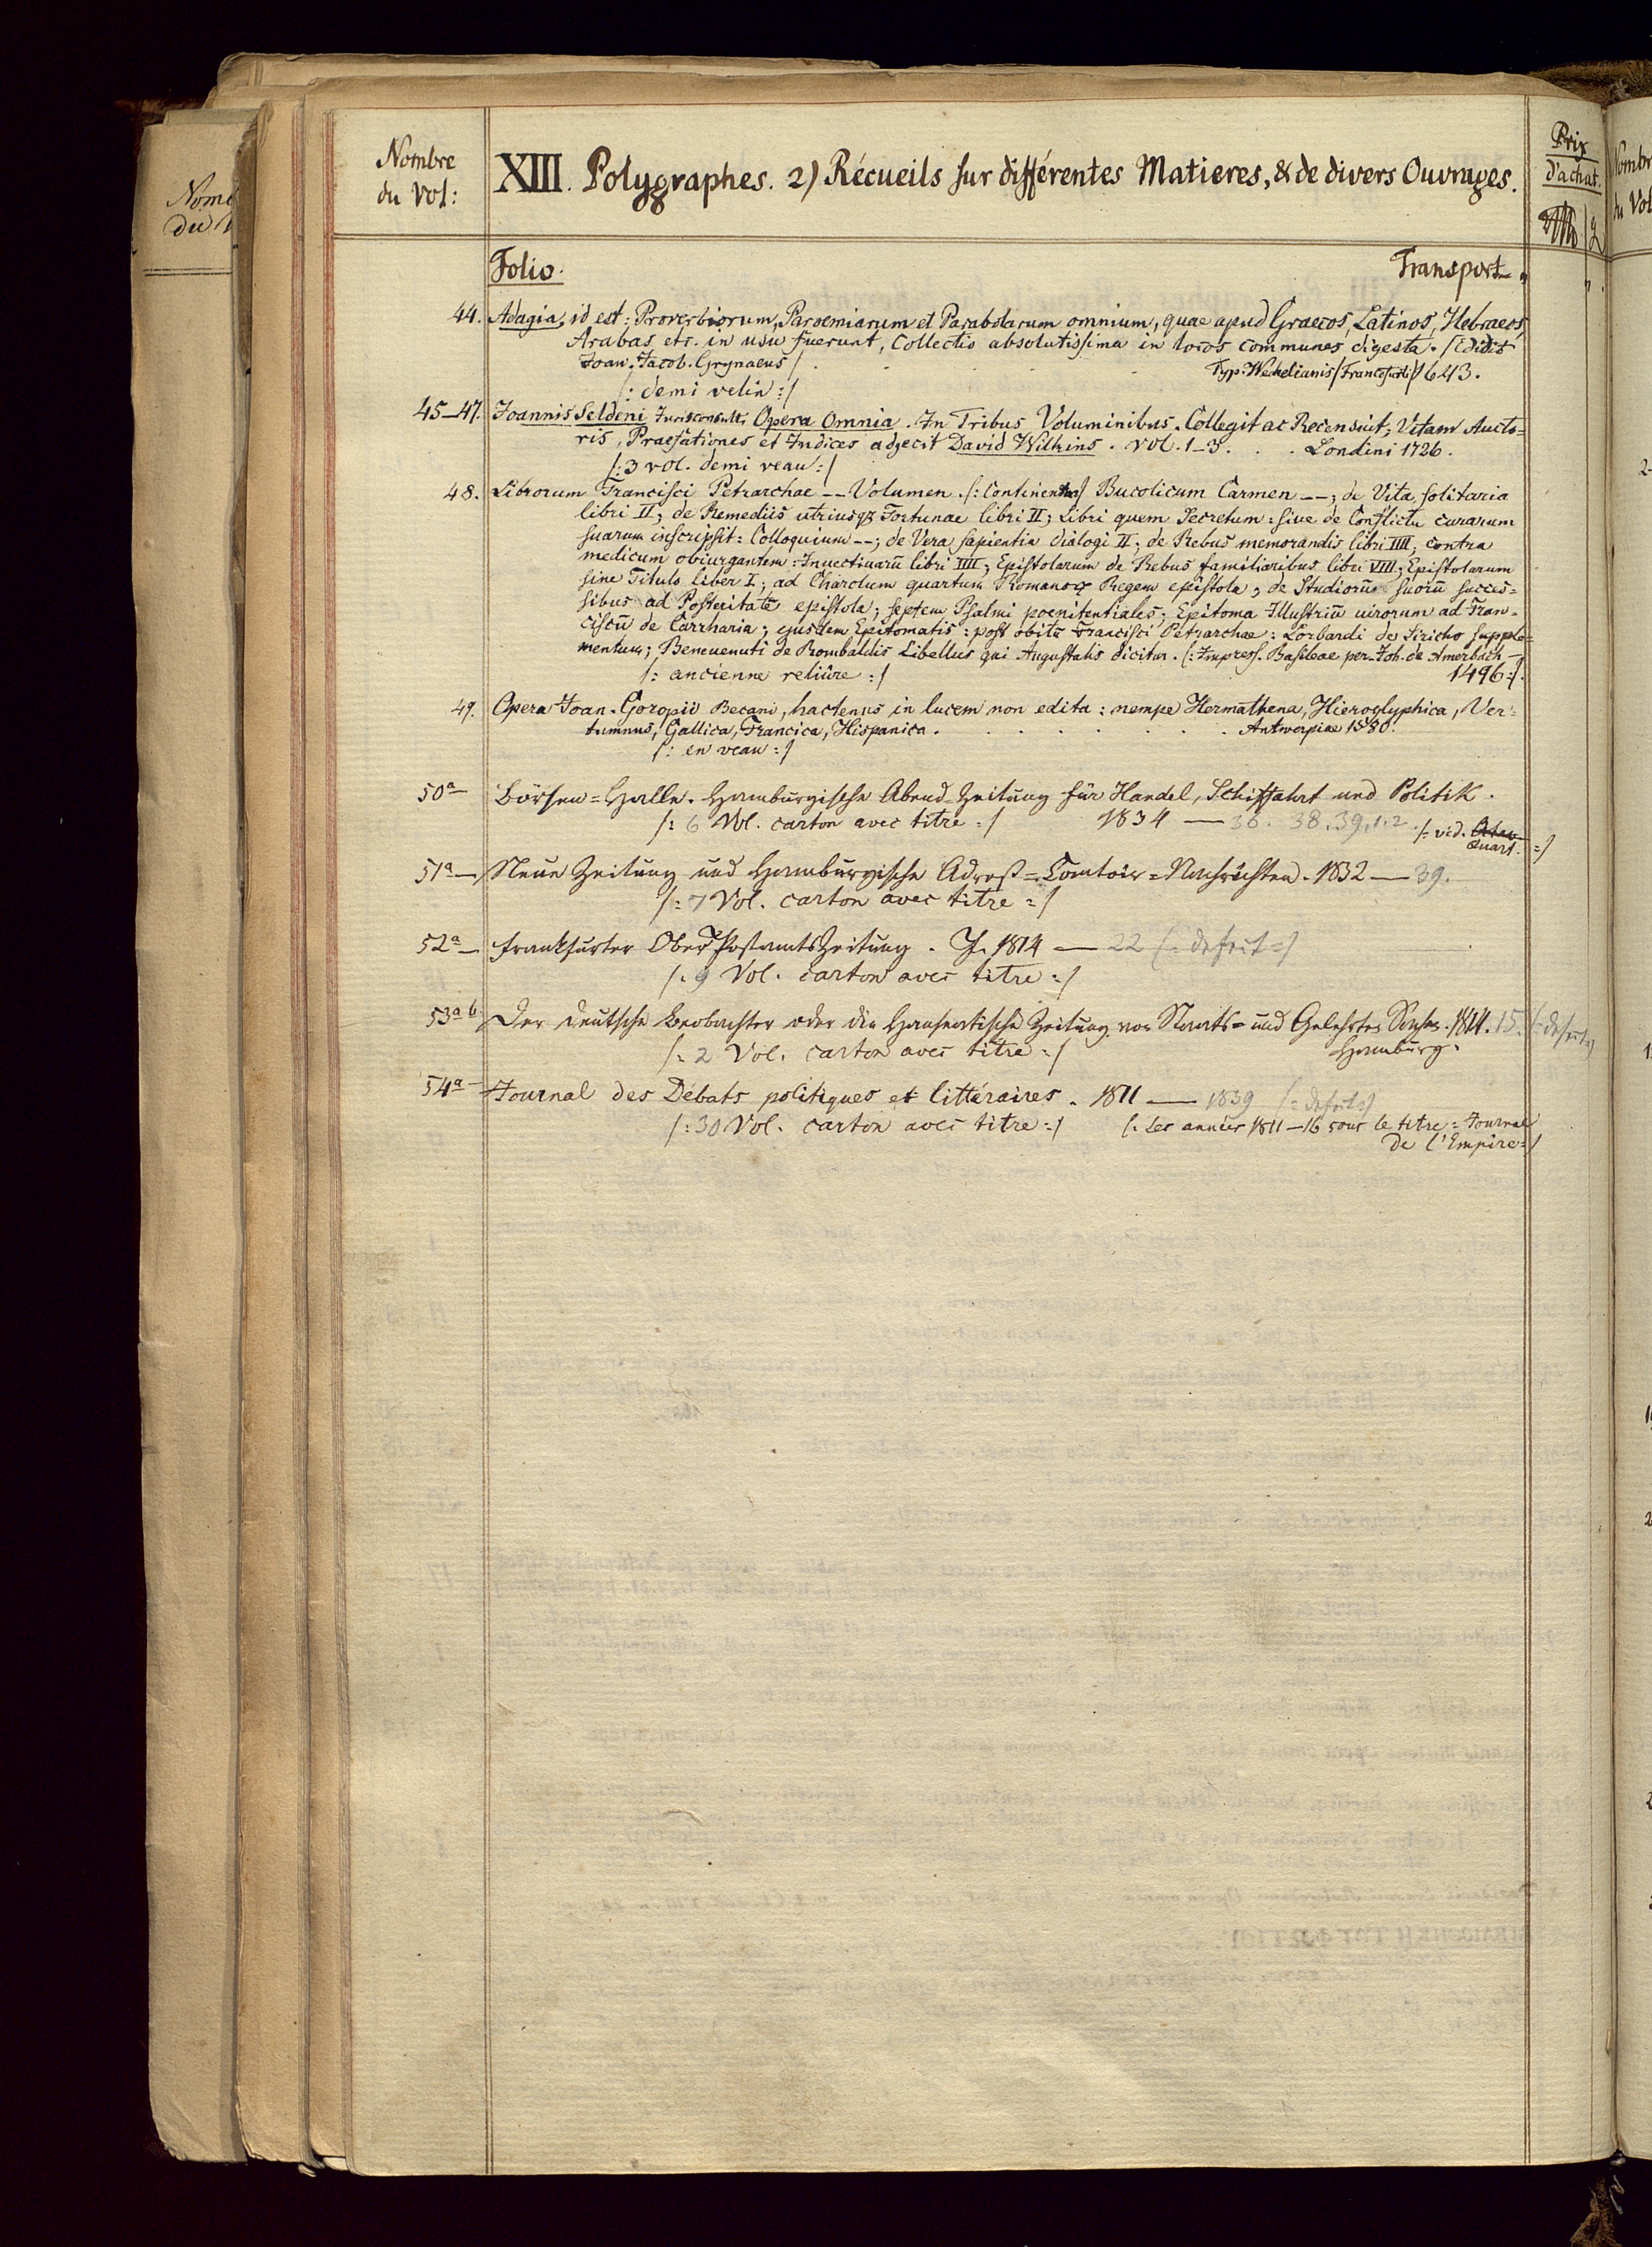 Nombre
du Vol:
XIII. Polygraphes. 2) Récueils sur différentes Matieres, & de divers Ouvrages.
Prix
d'achat.
Folio.
Transport
44. Adagia, id est: Proverbiorum, Paroemiarum et Parabolarum omnium, quae apud Graecos, Latinos, Hebraeos,
Arabas etc. in usu fuerunt, Collectio absolutissima in locos communes digesta. /Edidit
Joan. Jacob. Grynaeus/ . . . Typ. Wechelianis /Francofurti/ 1643.
/: demi velin :/
45–47. Joannis Seldeni Jurisconsulti Opera Omnia. In Tribus Voluminibus. Collegit ac Recensuit; Vitam Aucto=
ris, Praefationes et Indices adjecit David Wilkins. vol. 1–3. . . Londini 1726.
/: 3 vol. demi veau :/
48. Librorum Francisci Petrarchae -- Volumen. /: Continens :/ Bucolicum Carmen --; de Vita solitaria
libri II; de Remediis utriusqz Fortunae libri II; Libri quem Secretum: siue de Conflictu curarum
suarum inscripsit: Colloquium --; de Vera sapientia dialogi II; de Rebus memorandis libri IIII; contra
medicum obiurgantem: Inuectiuarū libri IIII; Epistolarum de Rebus familiaribus libri VIII; Epistolarum
sine Titulo liber I; ad Charolum quartum Romanoꝝ Regem epistola; de Studiorū suorū succes=
sibus ad Posteritatē epistola; septem Psalmi poenitentiales; Epitoma Illustriū uirorum ad Fran=
ciscū de Carrharia; ejusdem Epitomatis: post obitū Francisci Petrarchae: Lombardi de Siricho supple=
mentum; Beneuenuti de Rombaldis Libellus qui Augustalis dicitur. /: Impress. Basileae per Joh. de Amerbach –
/: ancienne reliûre :/ 1496 :/.
49. Opera Joan. Goropii Becani, hactenus in lucem non edita: nempe Hermathena, Hieroglyphica, Ver=
tumnus, Gallica, Francica, Hispanica. . . . . . . . Antwerpiae 1580.
/: en veau :/
50a – Börsen=Halle. Hamburgische Abend-Zeitung für Handel, Schiffahrt und Politik.
/: 6 Vol. carton avec titre :/ 1834 — 36. 38. 39, 1. 2. /: vid. Octav
Quart. :/
51a – Neue Zeitung und Hamburgische Adreß=Comtoir=Nachrichten. 1832 — 39.
/: 7 Vol. carton avec titre :/
52a – Frankfurter Ober PostamtsZeitung. J. 1814 — 22 /: defect :/
/: 9 Vol. carton avec titre :/
53a b Der deutsche Beobachter oder die Hanseatische Zeitung von Staats= und Gelehrten Sachen. 1814. 15. /: defect :/
/: 2 Vol. carton avec titre :/ Hamburg.
54a – Journal des Débats politiques et littéraires. 1811 — 1839 /: defect :/
/: 30 Vol. carton avec titre :/ /: les années 1811–16 sous le titre: Journal
de l'Empire :/